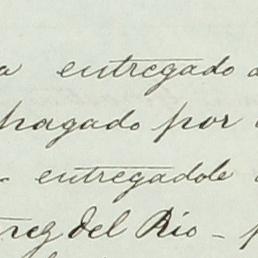 a entregado a
pagado por
entregadole
rez del Rio - p